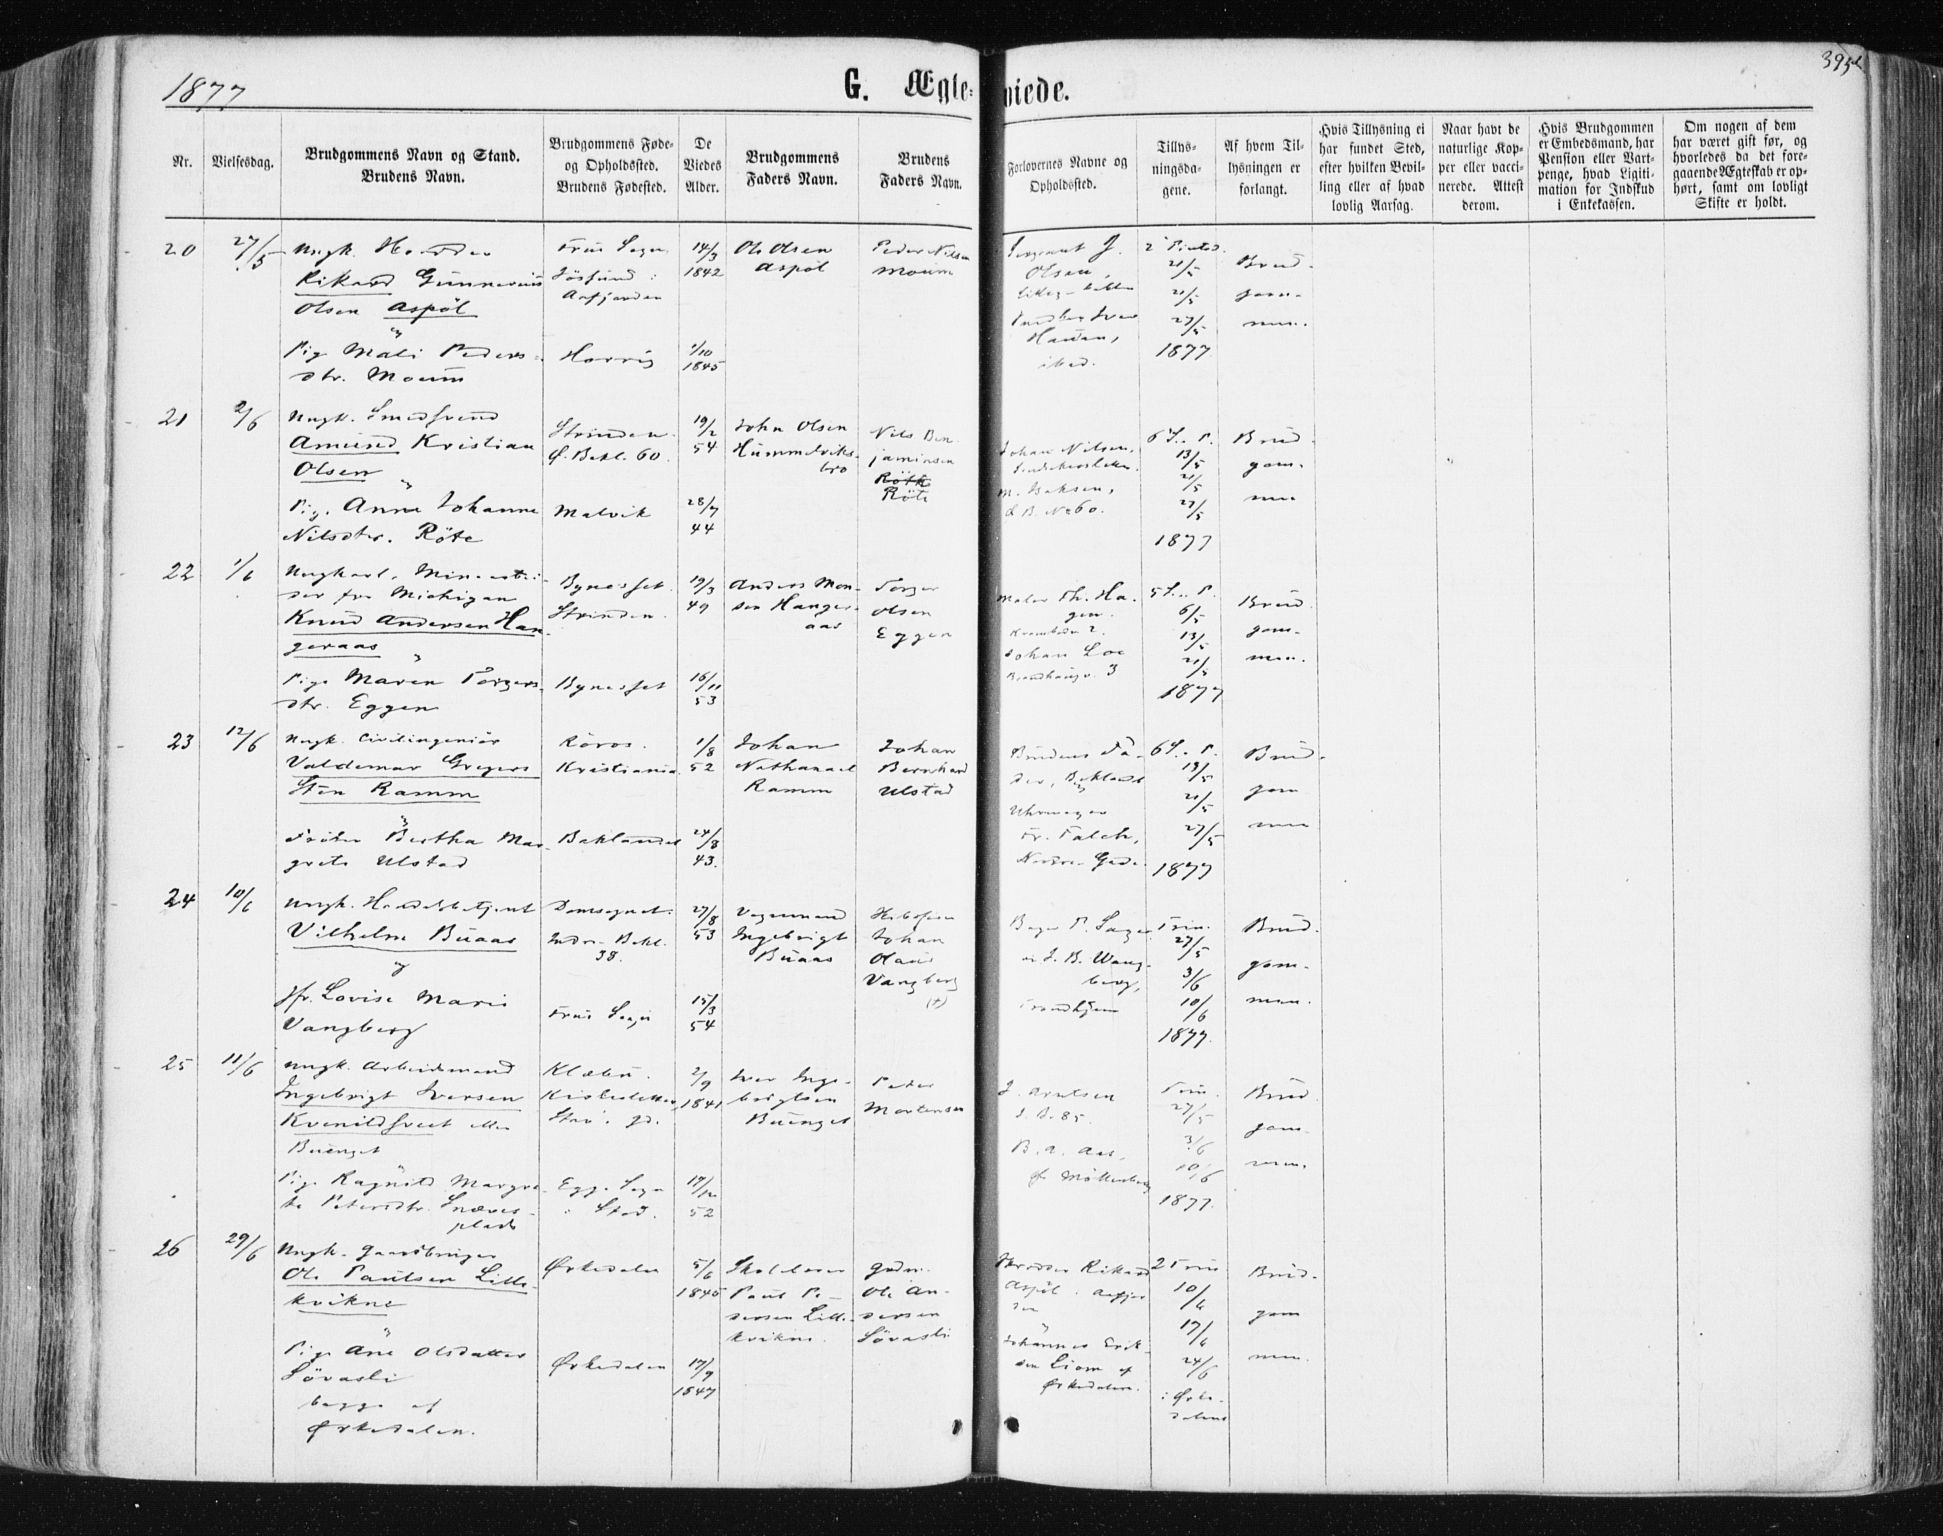 1877
G. Ægte-
viede.
395
Nr.
Vielsesdag.
Brudgommens Navn og Stand.
Brudens Navn.
Brudgommens Føde-
og Opholdssted.
Brudens Fødested.
De
Viedes
Alder.
Brudgommens
Faders Navn.
Brudens
Faders Navn.
Forlovernes Navne og
Opholdssted.
Tillys-
ningsda-
gene.
Af hvem Til-
lysningen er
forlangt.
Hvis Tillysning ei
har fundet Sted,
efter hvilken Bevil-
ling eller af hvad
lovlig Aarsag.
Naar havt de
naturlige Kop-
per eller vacci-
nerede. Attest
derom.
Hvis Brudgommen
er Embedsmand, har
Pension eller Vart-
penge, hvad Ligiti-
mation for Indskud
i Enkekassen.
Om nogen af dem
har været gift før, og
hvorledes da det fore-
gaaende Ægteskab er op-
hørt, samt om lovligt
Skifte er holdt.
20
27/5
Ungk.
Rikard Gunnerius
Olsen Aspöl
Pige Mali Peders-
dtr. Moum
Frue Sogn
Jössund i
Aafjorden
14/3
1842
1/10
1845
Ole Olsen
Aspöl
Peder Nilsen
Moum
Sergeant J.
Olsen,
21/5
27/5
1877
Brud-
gom-
men.
21
2/6
Ungk. Smedsvend
Amund Kristian
Olsen
Pig. Anne Johanne
Nilsdtr. Röte
Strinden.
Ø. Bakl. 60.
Malvik
19/2
54
28/7
44
John Olsen
Hummelviks-
bro
Nils Ben-
jaminsen
Röte
Johan Nilsen,
M. Baksen,
6 S. e. P.
13/5
21/5
27/5
1877
Brud-
gom-
men
22
1/6
Ungkarl, Minearbei-
der fra Michigan
Knud Andersen Han-
geraas
Pige Maren Torgers-
dtr. Eggen
Bynesset
Strinden.
Bynesset
19/3
49
16/11
53
Anders Mon-
sen Hanger-
aas
Torger
Olsen
Eggen
Maler Th. Ha-
gen.
Johan Loe
5 S. e. P.
6/5
13/5
21/5
1877
Brud-
gom-
men.
23
12/6
Ungk. Civilingeniör
Valdemar Gregers
Sten Ramm
Fröken Bertha Mar-
grete Ulstad
Röros.
Kristiania.
Baklandet
1/8
52
24/8
43.
Johan
Nathanael
Ramm
Johan
Bernhard
Ulstad
Brudens Fa-
der, Baklandet
Uhrmager
Fr. Falch,
Nordre Gade.
6 S. e. P.
13/5
21/5
27/5
1877
Brud-
gom
men
24
10/6
Ungk. Handelsbetjent
Vilhelm Buaas
og
Jfr. Lovise Marie
Vangberg
Domsognet.
Indr. Bakl.
38.
Frue Sogn
27/8
53
15/3
54
Vognmand
Ingebrigt
Buaas
Johan
Olaus
Vangberg
(+)
J. B. Wang-
berg,
Trondhjem
Trin.
27/5
3/6
10/6
1877.
Brud-
gom-
men.
25
11/6
Ungk. Arbeidsmand
Ingebrigt Iversen
Kvenildsveet eller
Buenget
Pige Ragnild Margre-
te Petersdtr. Snæves-
plads
Klæbu.
Egge Sogn
i Stod.
2/9
1841
17/12
52
Iver Inge-
brigtsen
Buenget
Peter
Mortensen
J. Arntsen
B. A. Aas,
af Möllenberg
Trin.
27/5
3/6
10/6
1877.
Brud
gom-
men.
26
29/6
Ungk. Gaardbruger
Ole Paulsen Lille-
kvikne
Pige Ane Olsdatter
Sövasli
begge af
Ørkedalen.
Ørkedalen
Ørkedalen
5/6
1845
17/9
1847
Skolelærer
Paul Pe-
dersen Lille-
kvikne.
Gdm.
Ole An-
dersen
Sövasli
Rikard
Aspöl i Aafjor
den
Johannes Erik-
sen Eiom af
Ørkedalen.
2 Trin
10/6
17/6
24/6
i Ørke-
dalens
Brud-
gom
men.